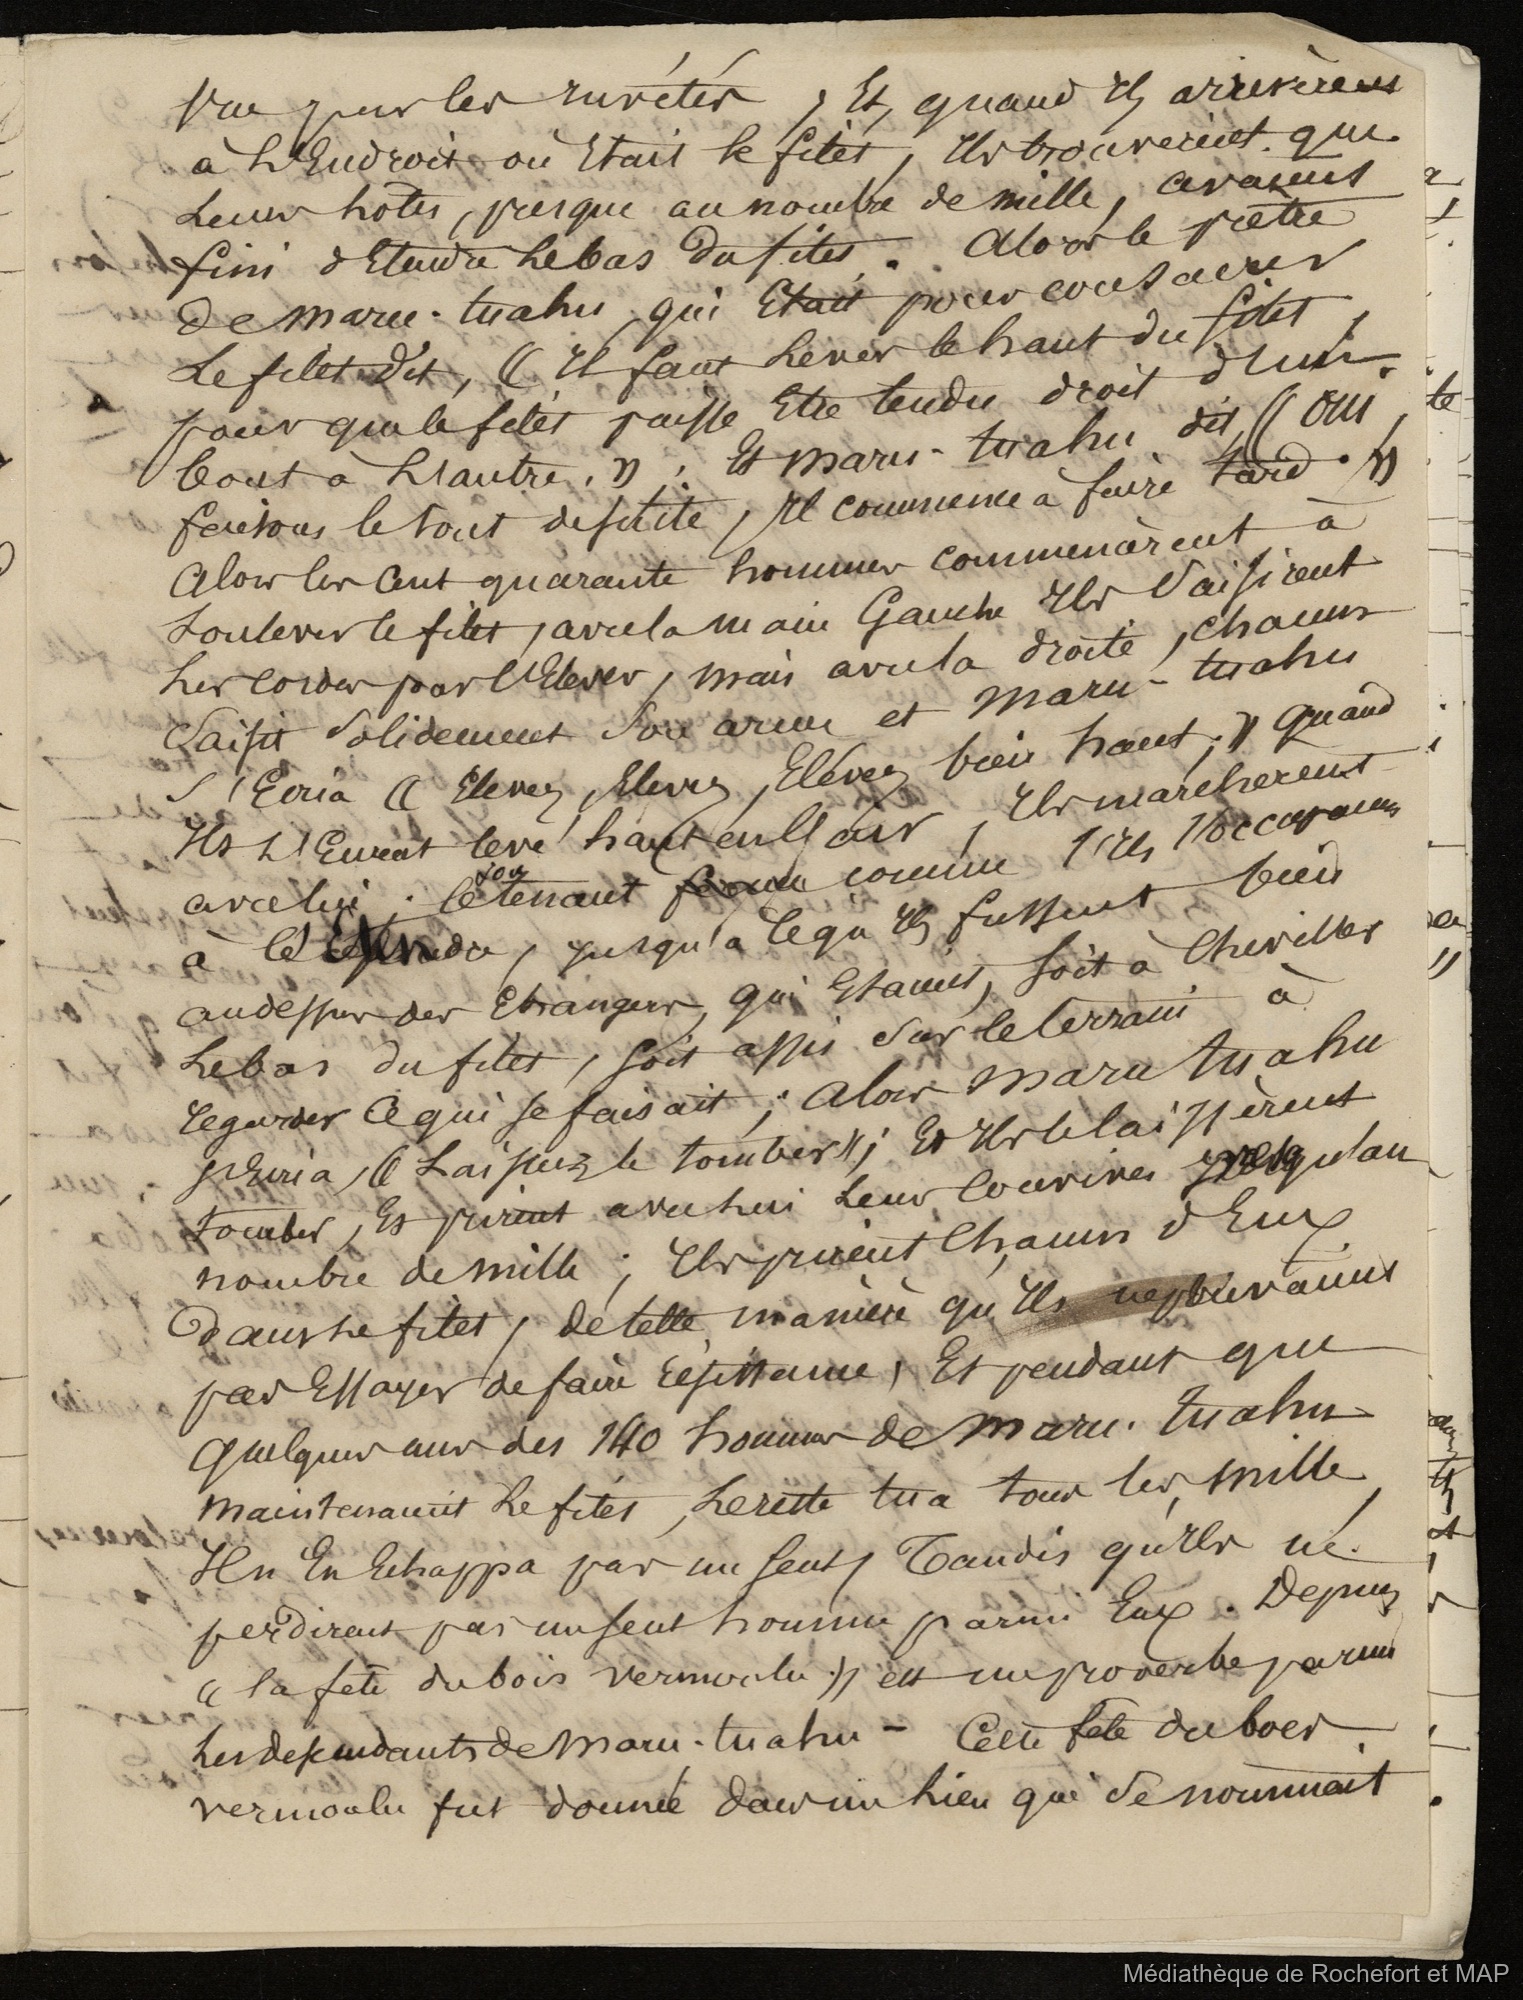 vue par les invités, Et, quand Ils arrivèrent
à L'Endroit où Etait le filet, Ils trouverent que
Leurs hôtes, presque au nombre de mille, avaient
fini d'Etendre Le bas du filet. Alors le prêtre
de Maru-tuahu, qui Etait pour consacrer
Le filet dit, (( Il faut Lever le haut du filet,
pour que le filet puisse Etre tendu droit d'un
bout à L'autre. )) ; Et Maru-tuahu dit, (( Oui,
faisons le tout de suite, Il commence à faire tard. ))
Alors les Cent quarante hommes commencèrent à
Soulever le filet, avec la main Gauche Ils Saisirent
Les Cordes pour l'Elever, mais avec la droite, chacun
Saisit Solidement Son arme et Maru-tuahu
s'Ecria (( Elevez, Elevez, Elévez bien haut, )) quand
Ils L'Eurent levé haut en l'air, Ils marcherent
avec lui, le tenant comme s'Ils s'occupaient
à l'Etendre, jusqu'a ce qu'Ils fussent bien
au dessus des Etrangers, qui Etaient, soit à Cheviller
Le bas du filet, soit assis Sur le terrain à
regarder Ce qui se faisait ; Alors Maru tuahu
s'Ecria, (( Laissez le tomber )) ; Et Ils le laissèrent
tomber, Et prirent avec lui Leurs Convives presqu'au
nombre de mille ; Ils prirent Chacun d'Eux
Dans Le filet, de telle manière qu'Ils ne pouvaient
pas Essayer de faire résistance, Et pendant que
quelques uns des 140 hommes de Maru-tuahu
maintenaient Le filet, Le reste tua tous les mille,
Il n'En Echappa pas un seul, Tandis qu'Ils ne
perdirent pas un seul homme parmi Eux. Depuis
(( la fête du bois vermoulu )) est un proverbe parmi
Les descendants de Maru-tuahu - Cette fête du bois
vermoulu fut donnée dans un Lieu qui Se nommait
Médiathèque de Rochefort et MAP